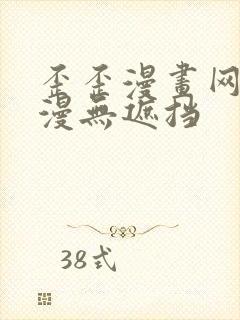 歪歪漫畫网
漫無遮挡
38式